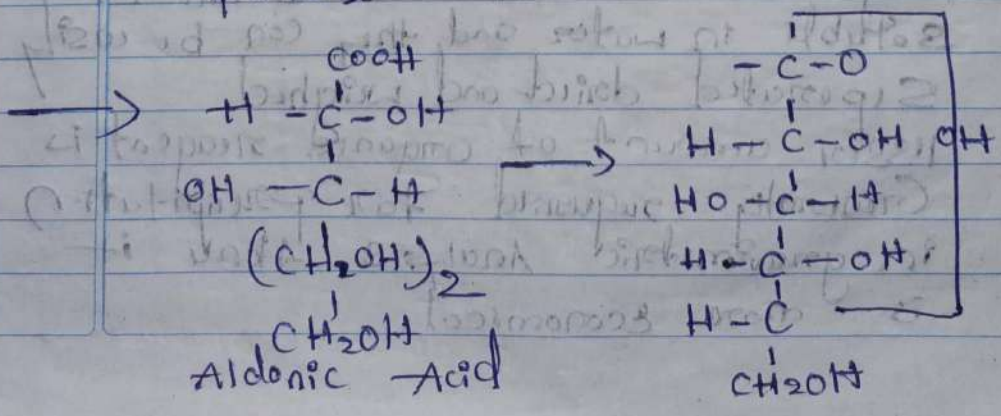 COOH
H - C - OH
OH - C - H
(CH2OH)2
CH2OH
Aldonic Acid
- C - O
H - C - OH OH
HO - C - H
H - C - OH
H - C
CH2OH